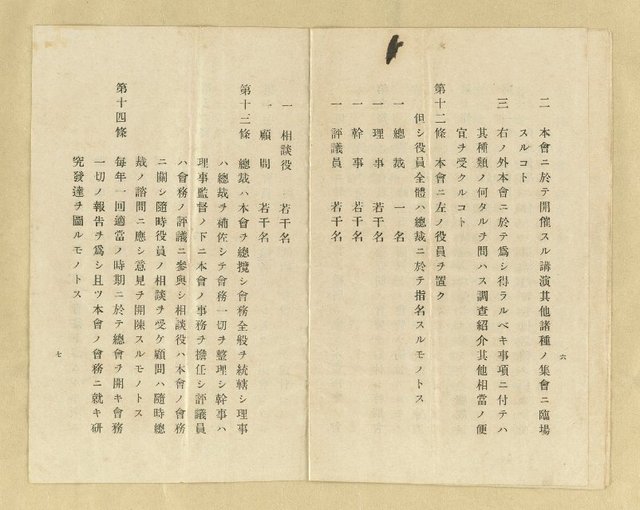 二 本會ニ於テ開催スル講演其他諸種ノ集會ニ臨場
スルコト
三 右ノ外本會ニ於テ爲シ得ラルベキ事項ニ付テハ
其種類ノ何タルヲ問ハス調査紹介其他相當ノ便
宜ヲ受クルコト
第十二條 本會ニ左ノ役員ヲ置ク
但シ役員全體ハ總裁ニ於テ指名スルモノトス
一 總裁 一名
一 幹事 若干名
一 理事 若干名
一 評議員 若干名
六
一 相談役 若干名
一 顧問 若干名
第十三條 總裁ハ本會ヲ總攬シ會務全般ヲ統轄シ理事
ハ總裁ヲ補佐シテ會務一切ヲ整理シ幹事ハ
理事監督ノ下ニ本會ノ事務ヲ擔任シ評議員
ハ會務ノ評議ニ參與シ相談役ハ本會ノ會務
ニ關シ隨時役員ノ相談ヲ受ケ顧問ハ隨時總
裁ノ諮問ニ應シ意見ヲ開陳スルモノトス
第十四條 每年一回適當ノ時期ニ於テ總會ヲ開キ會務
一切ノ報告ヲ爲シ且ツ本會ノ會務ニ就キ研
究發達ヲ圖ルモノトス
七